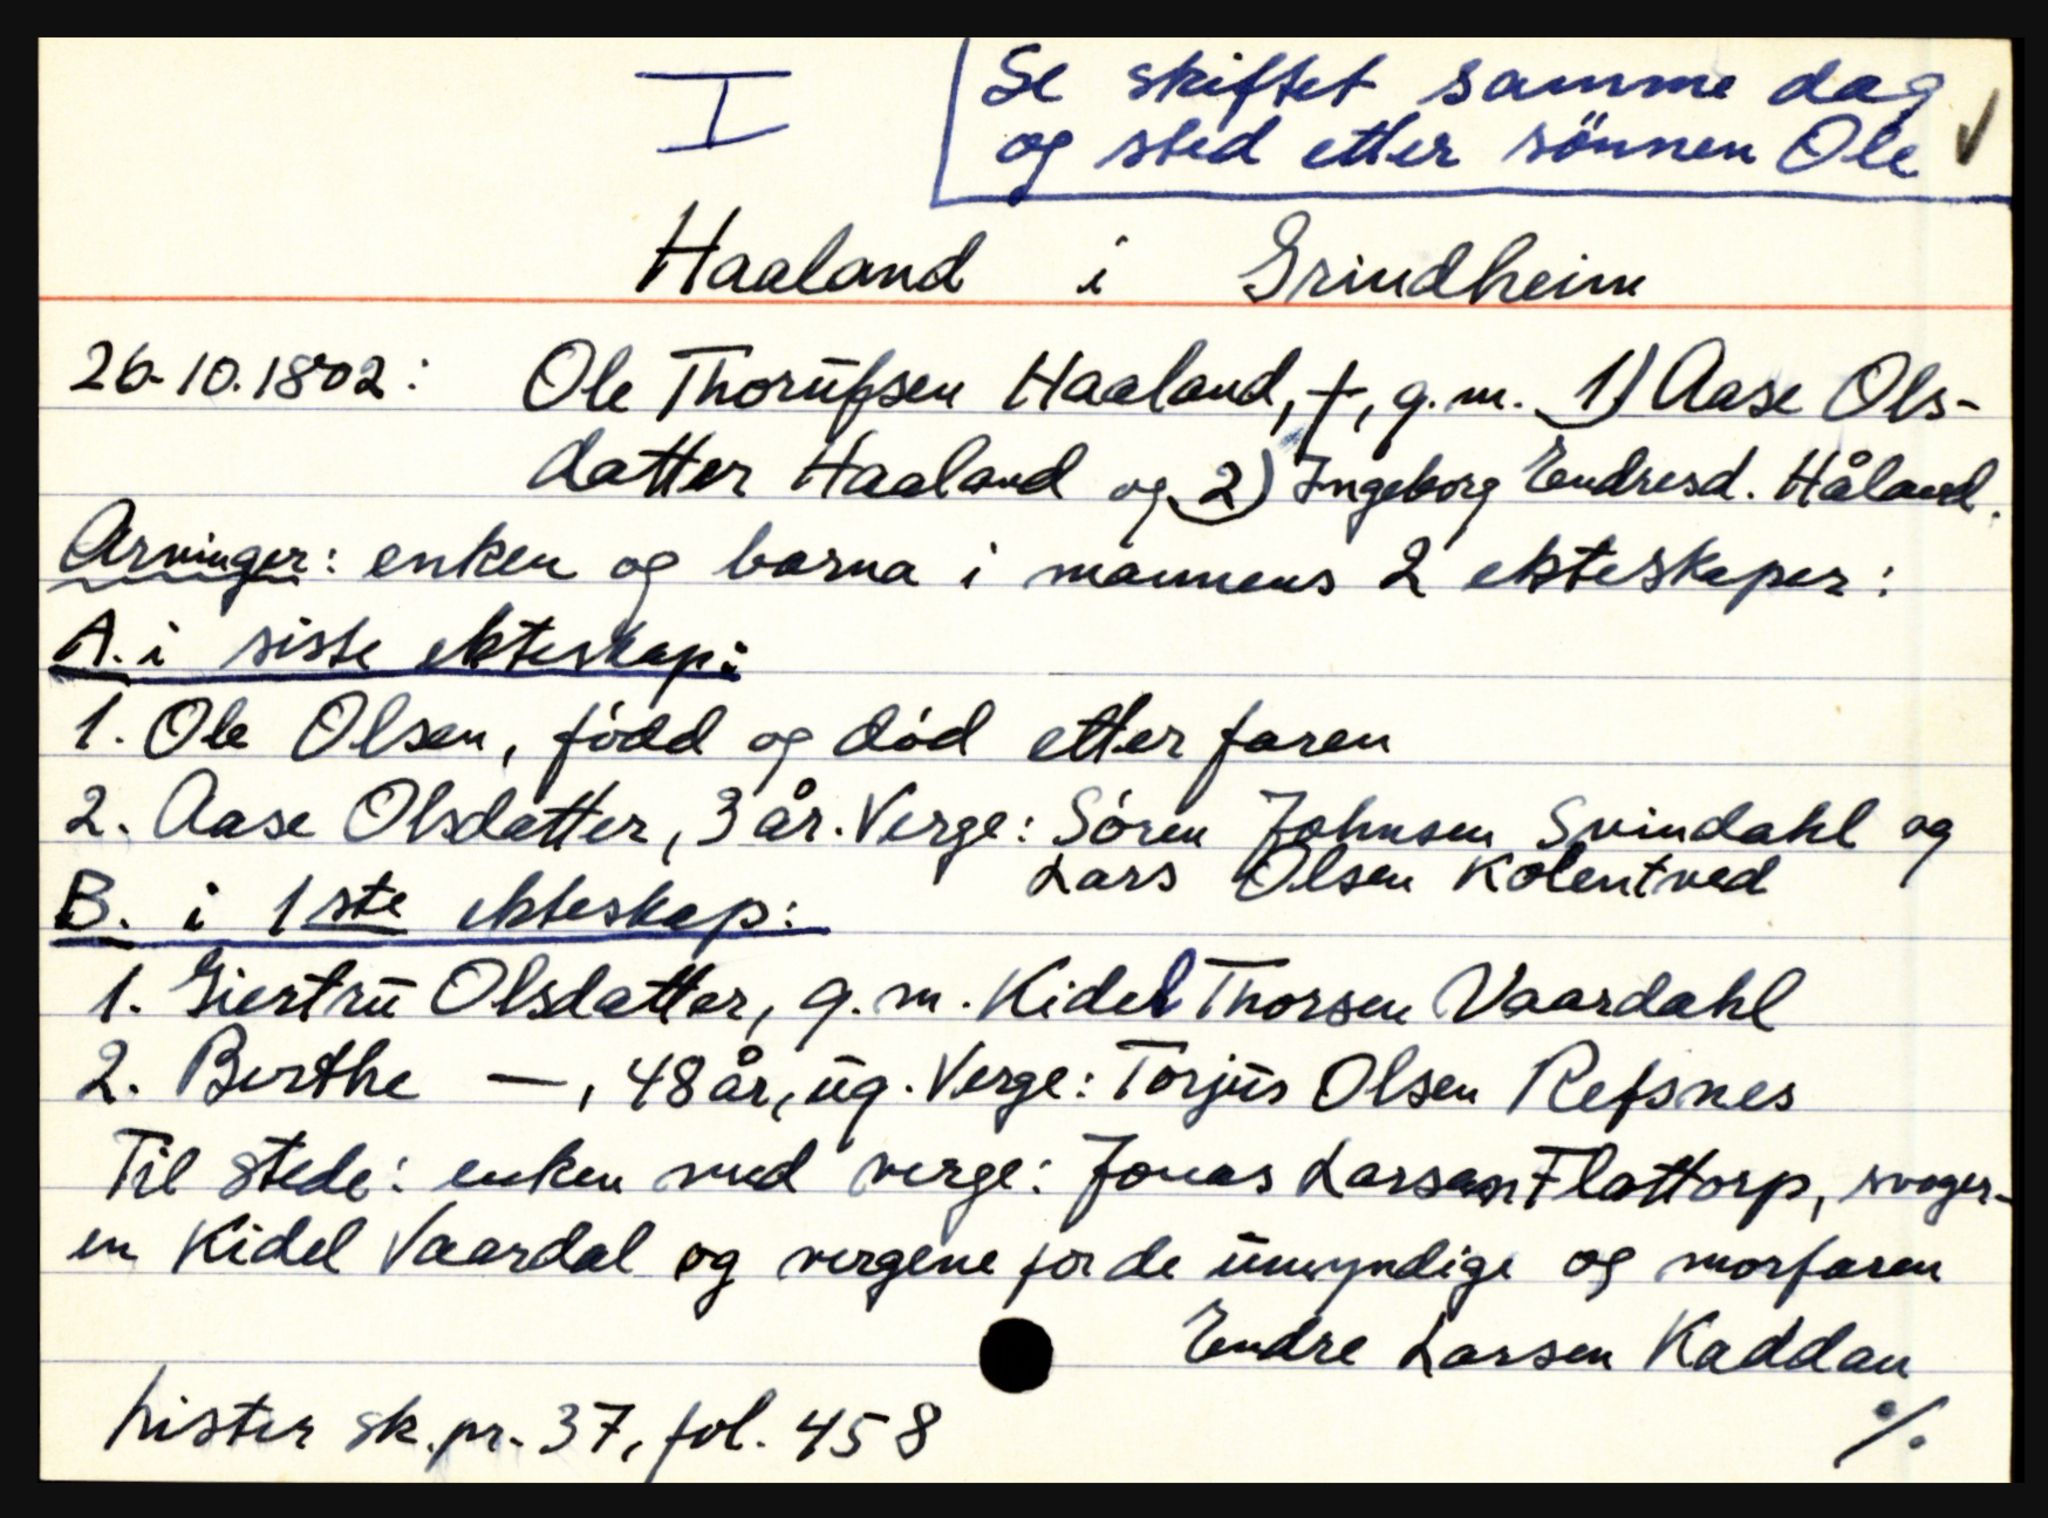 I
Se skiftet samme dag
og sted etter sönnen Ole ✓
Haaland i Grindheim
26.10.1802: Ole Thorufsen Haaland, †, g.m. 1) Aase Ols-
datter Haaland og 2) Ingeborg Endresd. Håland.
Arvinger: enken og barna i mannens 2 ekteskaper:
A. i siste ekteskap:
1. Ole Olsen, fødd og død etter faren
2. Aase Olsdatter, 3 år. Verge: Søren Johnsen Svindahl og
Lars Olsen Kolentved
B. i 1ste ekteskap:
1. Giertru Olsdatter, g.m. Kidel Thorsen Vaardahl
2. Berthe —, 48 år, ug. Verge: Torjus Olsen Refsnes
Til stede: enken med verge: Jonas Larsen Flottorp, svoger-
en Kidel Vaardal og vergene for de umyndige og morfaren
Endre Larsen Kaddan
Lister sk.pr. 37, fol. 458
%